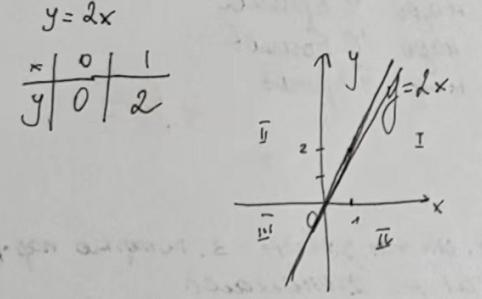 y = 2x
x | 0 | 1
y | 0 | 2
y
y = 2x
II
2
I
0
1
x
III
IV